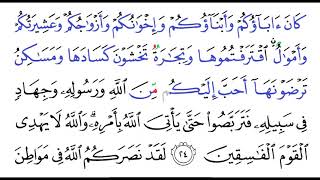 كَانَ ءَابَآؤُكُمْ وَأَبْنَآؤُكُمْ وَإِخْوَٰنُكُمْ وَأَزْوَٰجُكُمْ وَعَشِيرَتُكُمْ
وَأَمْوَٰلٌ ٱقْتَرَفْتُمُوهَا وَتِجَٰرَةٌ تَخْشَوْنَ كَسَادَهَا وَمَسَٰكِنُ
تَرْضَوْنَهَآ أَحَبَّ إِلَيْكُم مِّنَ ٱللَّهِ وَرَسُولِهِۦ وَجِهَادٍ
فِى سَبِيلِهِۦ فَتَرَبَّصُوا۟ حَتَّىٰ يَأْتِىَ ٱللَّهُ بِأَمْرِهِۦ وَٱللَّهُ لَا يَهْدِى
ٱلْقَوْمَ ٱلْفَٰسِقِينَ ٢٤ لَقَدْ نَصَرَكُمُ ٱللَّهُ فِى مَوَاطِنَ